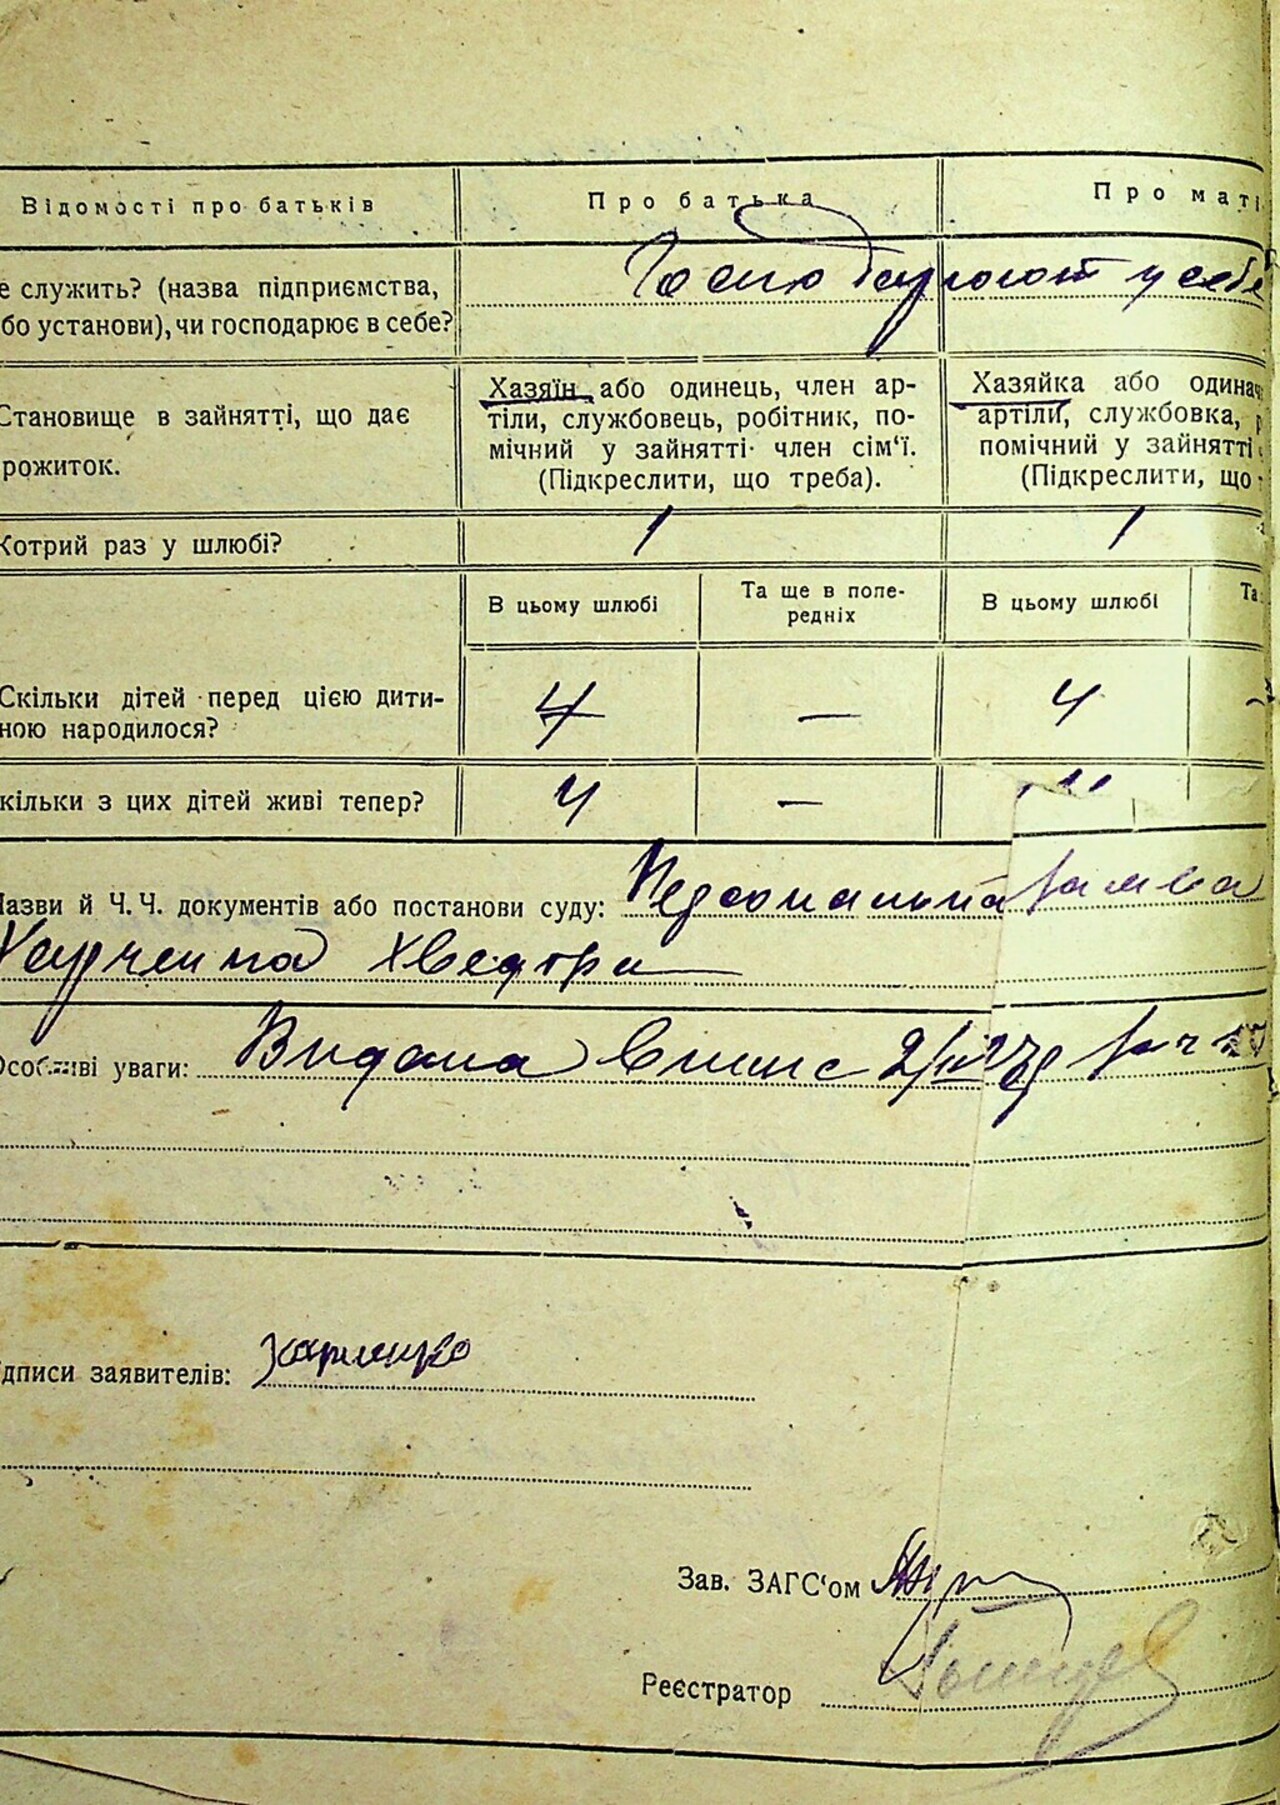 Відомості про батьків Про батька Про маті
е служить? (назва підприємства,
бо установи), чи господарює в себе? у себе
Становище в зайнятті, що дає
рожиток.
Хазяїн або одинець, член ар-
тілі, службовець, робітник, по-
мічний у зайнятті член сім‘ї.
(Підкреслити, що треба).
Хазяйка або одинач
артіли, службовка, р
помічний у зайнятті ч
(Підкреслити, що т
Котрий раз у шлюбі? 1 1
В цьому шлюбі Та ще в попе-
редніх В цьому шлюбі Та
Скільки дітей перед цією дити-
ною народилося? 4 — 4 —
кільки з цих дітей живі тепер? 4 —
Назви й Ч. Ч. документів або постанови суду: Персональна заява
Харченка Хведора
Особливі уваги: Видана
дписи заявителів:
Зав. ЗАГС‘ом
Реєстратор